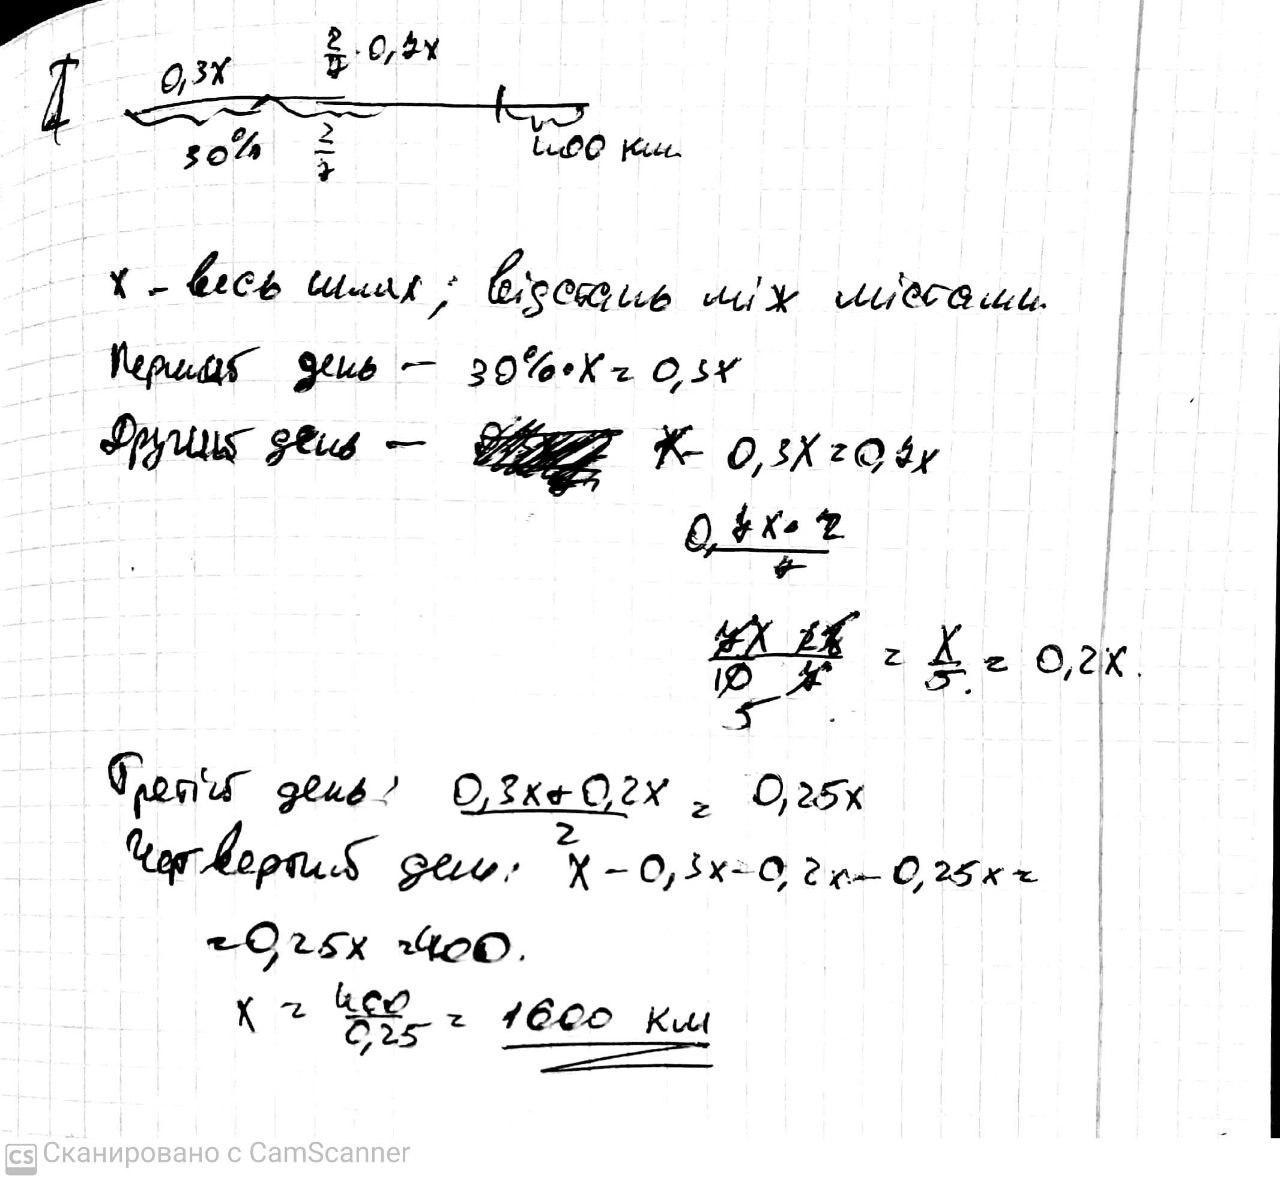 I
0,3x
2/7 · 0,7x
30%
2/7
400 км.
x - весь шлях; відстань між містами.
Перший день - 30%·x = 0,3x
Другий день - x - 0,3x = 0,7x
0,7x·2/7
7x 2/10 7 = x/5 = 0,2x.
5
Третій день: 0,3x+0,2x/2 = 0,25x
Четвертий день: x-0,3x-0,2x-0,25x=
=0,25x =400.
x = 400/0,25 = 1600 км
CS Сканировано с CamScanner